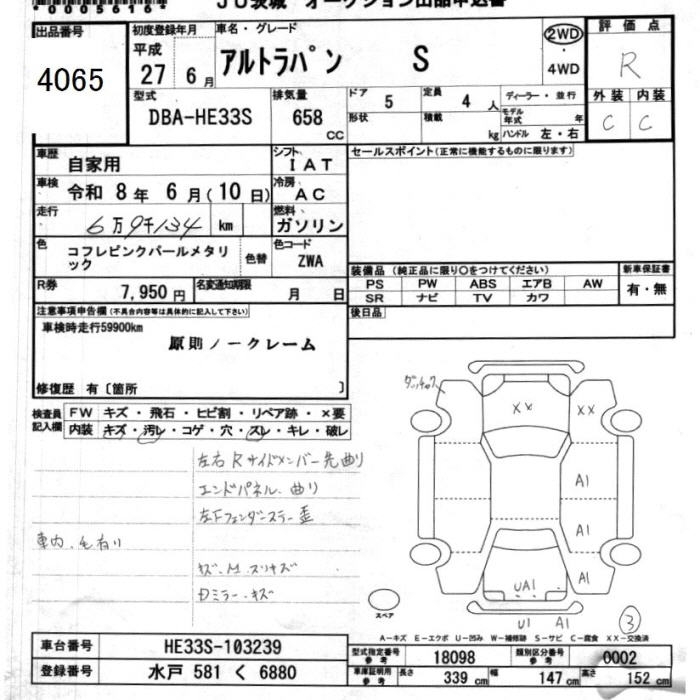 *0005616*
JU茨城 オークション出品申込書
出品番号
4065
初度登録年月
平成
27 6月
車名・グレード
アルトラパン S
2WD
・
4WD
評価点
R
型式
DBA-HE33S
排気量
658
CC
ドア
5
定員
4 人
ディーラー・並行
形状
積載
kg
モデル年式
年
ハンドル 左・右
外装 内装
C C
車歴
自家用
シフト
IAT
セールスポイント(正常に機能するものに限ります)
車検
令和 8年 6月(10日)
冷房
AC
走行
6万9千134
km
燃料
ガソリン
色
コフレピンクパールメタリック
色替
色コード
ZWA
装備品 (純正品に限り○をつけてください)
新車保証書
PS PW ABS エアB AW
SR ナビ TV カワ
有・無
R券
7,950円
名変通知期限
月 日
後日品
注意事項申告欄(不具合内容等は具体的に記入して下さい)
車検時走行59900km
原則ノークレーム
修復歴 有〔箇所 〕
検査員記入欄
FW キズ・飛石・ヒビ割・リペア跡・×要
内装 キズ・汚レ・コゲ・穴・スレ・キレ・破レ
左右Rサイドメンバー先曲り
エンドパネル 曲り
左Fフェンダーステー歪
車内 毛有り
キズ、M、スリキズ
Dミラーキズ
XX
XX
A1
A1
A1
UA1
U1 A1
③
スペア
A-キズ E-エクボ U-凹み W-補修跡 S-サビ C-腐食 XX-交換済
車台番号
HE33S-103239
登録番号
水戸 581 く 6880
型式指定番号
参考
18098
類別区分番号
参考
0002
車庫証明用
参考
長さ
339 cm
幅
147 cm
高さ
152 cm